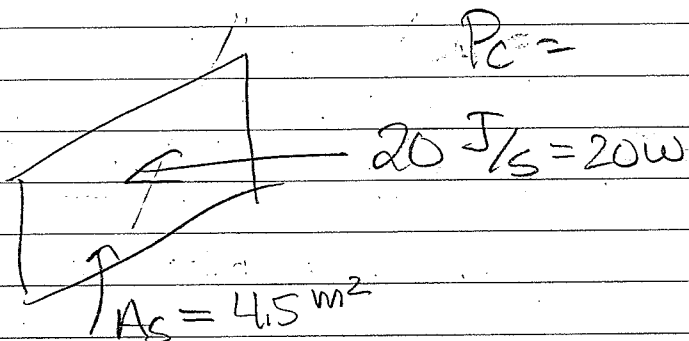 Pc =
20 J/s = 20W
As = 4.5 m²